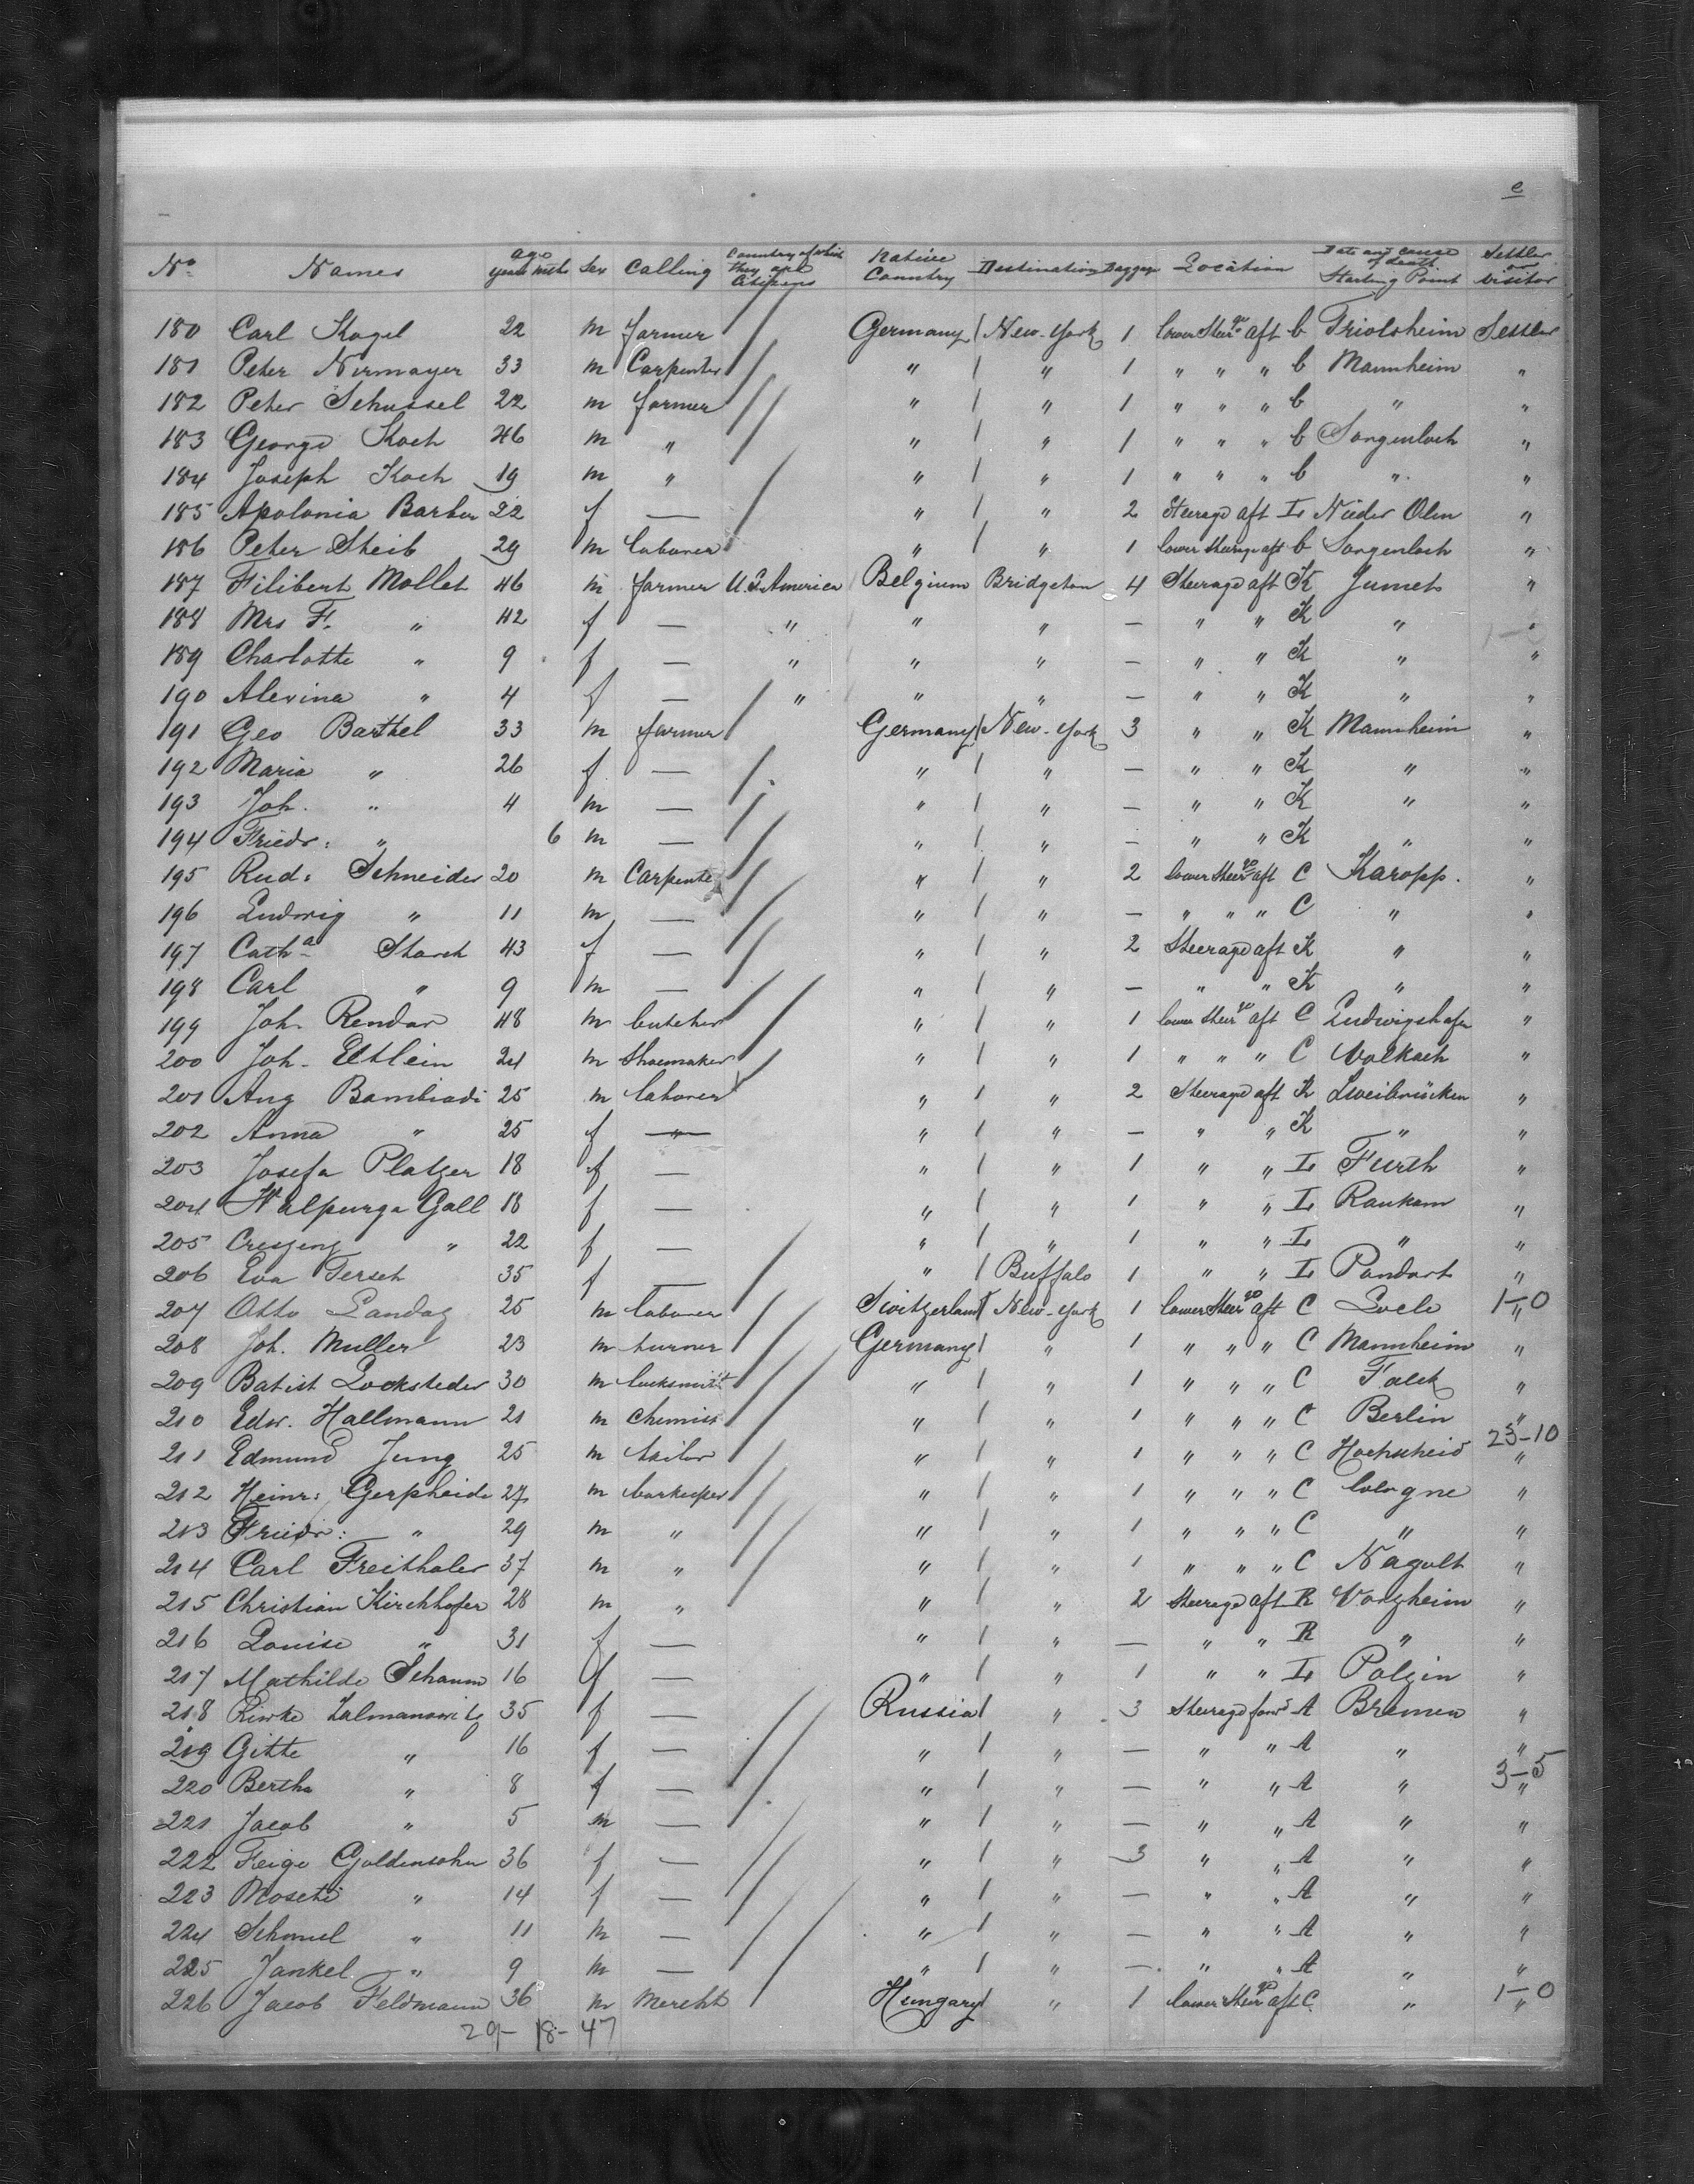 e
No Names age years mths Sex Calling Country of which they are Citizens Native Country Destination Baggage Location Date and cause of death Starting Point Settler or visitor
180 Carl Kogel 22 m farmer Germany New-York 1 lower Steerge aft C Friolsheim Settler
181 Peter Nirmayer 33 m Carpenter " " 1 " " " C Mannheim "
182 Peter Schussel 22 m farmer " " 1 " " " C " "
183 George Koch 46 m " " " 1 " " " C Sorgenloch "
184 Joseph Koch 19 m " " " 1 " " " C " "
185 Apolonia Barber 22 f — " " 2 Steerage aft L Nieder Olm "
186 Peter Steib 29 m laborer " " 1 lower Steerage aft C Sorgenloch "
187 Filibert Mollet 46 m farmer U.S. America Belgium Bridgeton 4 Steerage aft K Jumet "
188 Mrs F. " 42 f — " " " — " " K " "
189 Charlotte " 9 f — " " " — " " K " "
190 Alevina " 4 f — " " " — " " K " "
191 Geo Barthel 33 m farmer Germany New-York 3 " " K Mannheim "
192 Maria " 26 f — " " — " " K " "
193 Joh. " 4 m — " " — " " K " "
194 Friedr: " 6 m — " " — " " K " "
195 Rud: Schneider 20 m Carpente " " 2 lower Steerge aft C Karopp. "
196 Ludwig " 11 m — " " — " " " C " "
197 Catha Storch 43 f — " " 2 Steerage aft K " "
198 Carl " 9 m — " " — " " K " "
199 Joh. Rendar 48 m butcher " " 1 lower Steerge aft C Ludwigshafen "
200 Joh. Ettlein 24 m Shoemaker " " 1 " " " C Volkach "
201 Aug Bambiadi 25 m laborer " " 2 Steerage aft K Zweibrücken "
202 Anna " 25 f — " " — " " K " "
203 Josefa Platzer 18 f — " " 1 " " L Fürth "
204 Walpurga Gall 18 f — " " 1 " " L Rankam "
205 Creszenz " 22 f — " " 1 " " L " "
206 Eva Gersch 35 f — " Buffalo 1 " " L Pandort "
207 Otto Landag 25 m laborer Switzerland New-York 1 lower Steerge aft C Locle 1-0 "
208 Joh. Muller 23 m turner Germany " 1 " " " C Mannheim "
209 Batist Locksteder 30 m locksmith " " 1 " " " C Falck "
210 Edw. Hallmann 21 m chemist " " 1 " " " C Berlin "
211 Edmund Jung 25 m tailor " " 1 " " " C Hochscheid 23-10 "
212 Heinr: Gerpheide 27 m barkeeper " " 1 " " " C Cologne "
213 Friedr: " 29 m " " " 1 " " " C " "
214 Carl Freithaler 37 m " " " 1 " " " C Nagolt "
215 Christian Kirchhofer 28 m " " " 2 Steerage aft R Vorzheim "
216 Louise " 31 f — " " — " " R " "
217 Mathilde Schaum 16 f — " " 1 " " L Polzin "
218 Riwke Zalmanowitz 35 f — Russia " 3 Steerage forwd A Bremen "
219 Gitte " 16 f — " " — " " A " "
220 Bertha " 8 f — " " — " " A " 3-5 "
221 Jacob " 5 m — " " — " " A " "
222 Feige Goldensohn 36 f — " " 3 " " A " "
223 Mosche " 14 f — " " — " " A " "
224 Schmul " 11 m — " " — " " A " "
225 Jankel " 9 m — " " — " " A " "
226 Jacob Feldmann 36 m Mercht Hungary " 1 lower Steerge aft C " 1-0 "
29-18-47